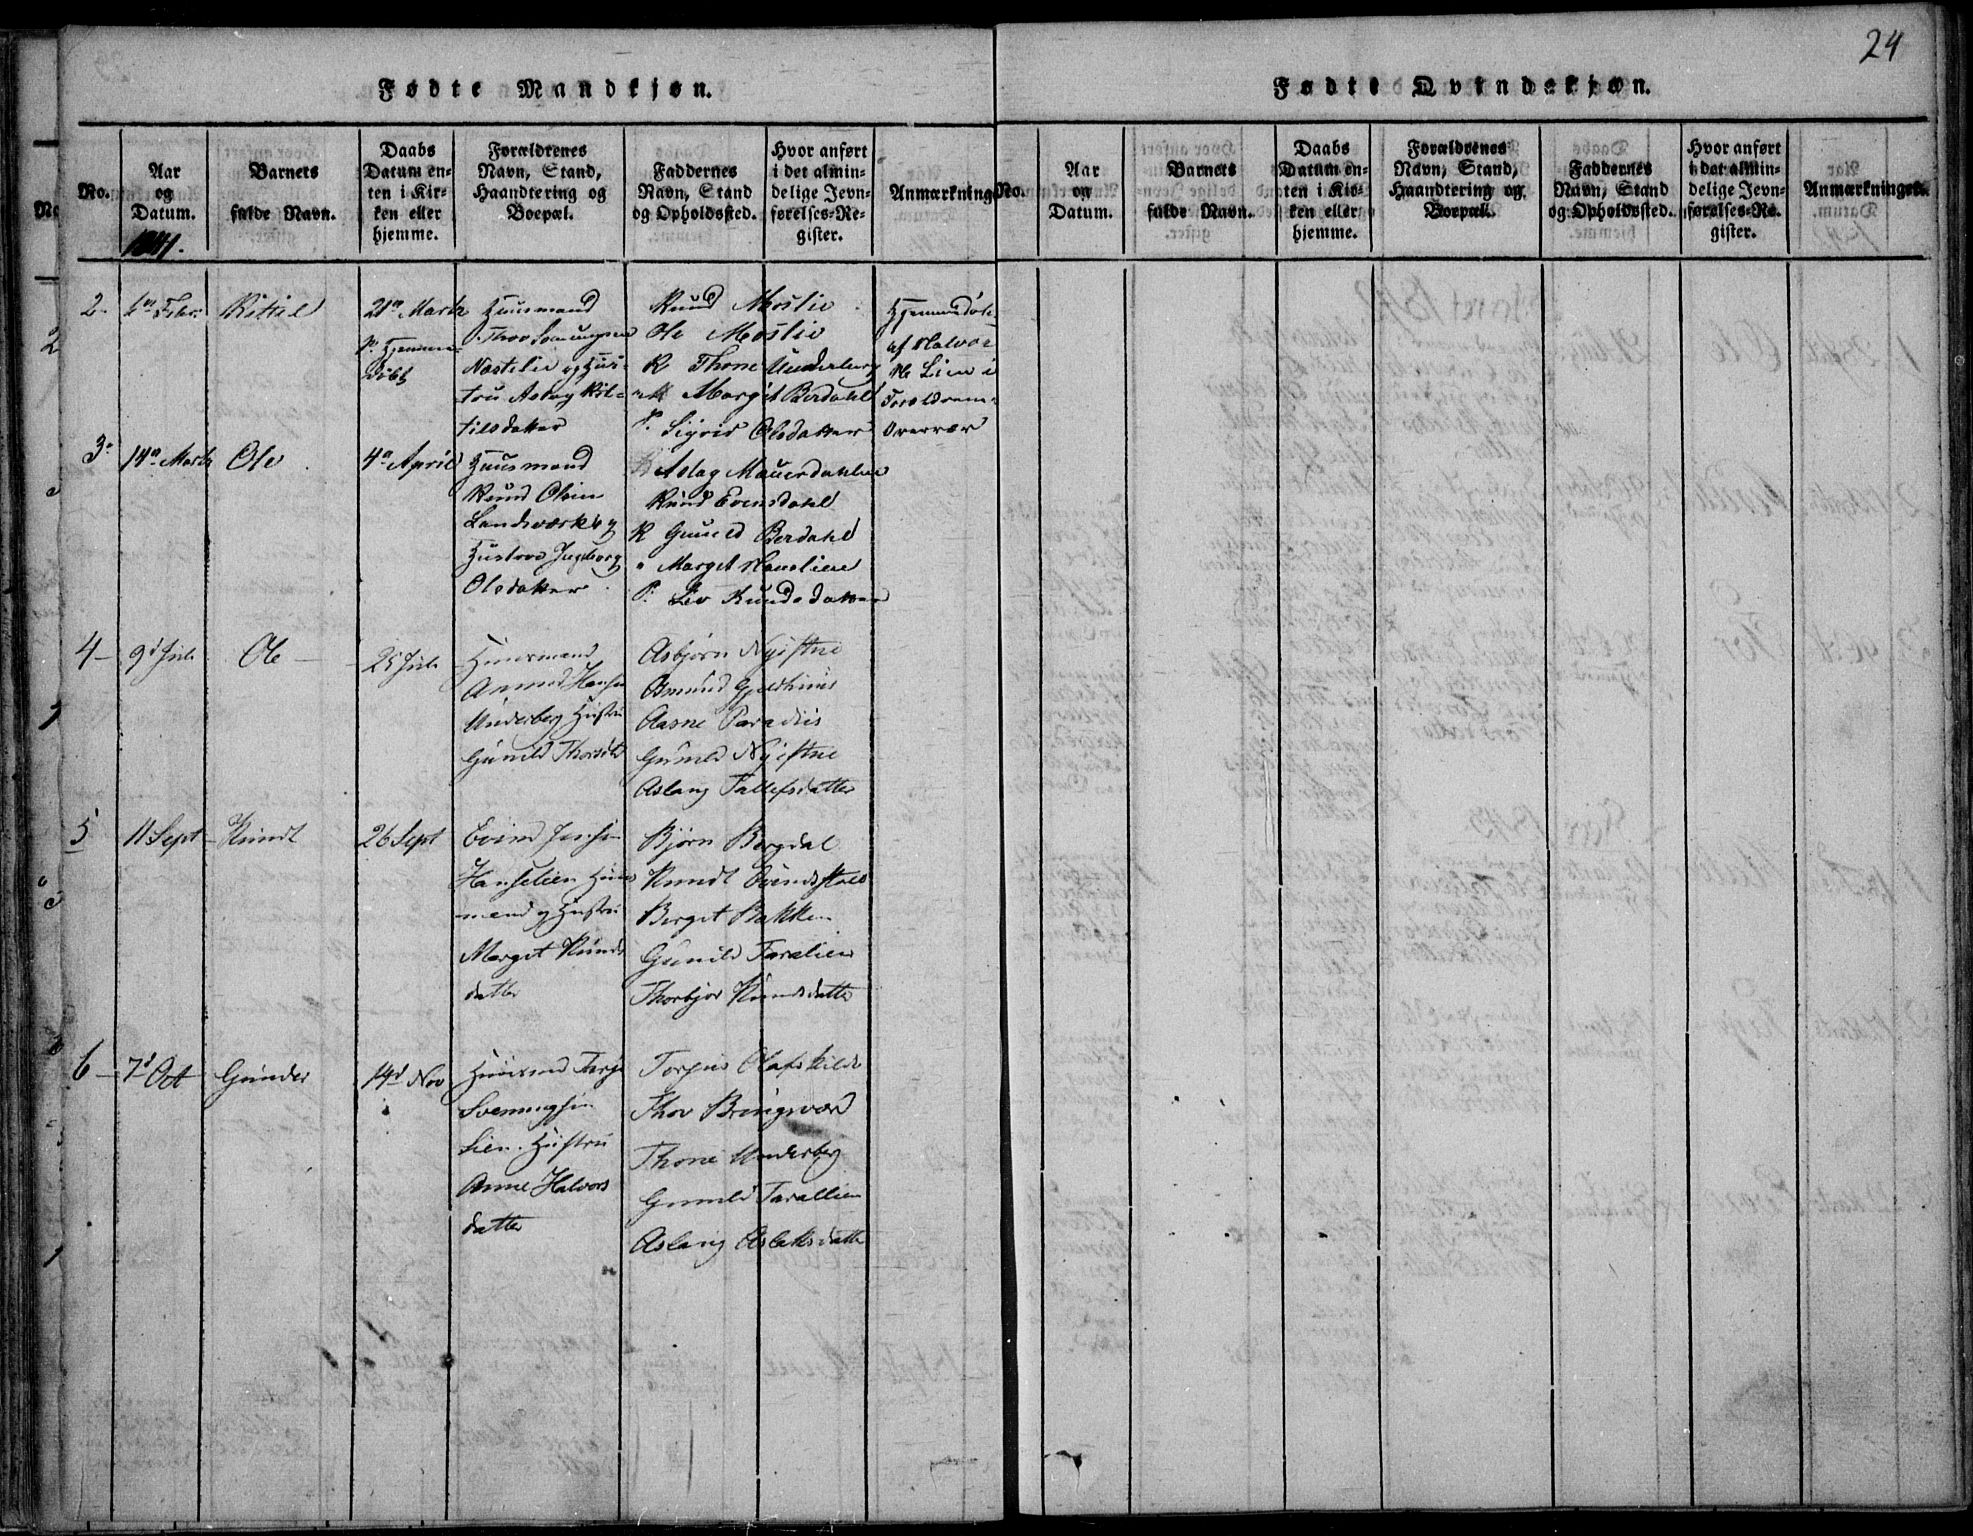 24
Fødte Mandkjøn.
No.
Aar
og
Datum.
1841.
Barnets
fulde Navn.
Daabs
Datum en-
ten i Kir-
ken eller
hjemme.
Forældrenes
Navn, Stand,
Haandtering og
Boepæl.
Faddernes
Navn, Stand
og Opholdssted.
Hvor anført
i det almin-
delige Jevn-
førelses-Re-
gister.
Anmærkning
2. 1ste Febr: Kittil 21de Marts
Huusmand
Thov
og Hus-
tru Aslog Kit-
tilsdatter
Knud Moslie
Ole Moslie
K Thone Underberg
Margit Berdahl
P. Sigrid Olsdatter
Hjemmedøbt
af Halvor
Lien i
Overvær
3. 14de Marts Ole 4de April
Huusmand
Knud Olsen
Landsværk og
Hustroe Ingborg
Olsdatter
Aslag Mauerdahlen
Knud Evensdahl
K Guneld Berdahl
Marget Hanslien
P. Liv Knudsdatter
4 – 9d Juli Ole 25 Juli
Huusmand
Amund Hansen
Underberg Hustru
Gunild Thorsdt
Asbjørn Nyestne
Amund Gjeldhuus
Aasne Paradiis
Gunild Nyestne
Aslaug Tallefsdatter
5 11 Sept Knudt 26 Sept
Evind Jensen
Hanselien Huus
mand og Hustru
Marget Knuds
datter
Bjørn Bergdal
Knudt Evindsstad
Berget Bakken
Gunild Taralien
Thorbjør Knudsdatter
6 – 7d Oct Gunder 14d Nov
Huusmd Terje
Svenningsen
Lien. Hustru
Anne Halvors
datter
Torgius
Thov Bringsvær
Thone Underberg
Gunild Tarallien
Aslaug Aslaksdatter
Fødte Qvindekjøn.
No.
Aar
og
Datum.
Barnets
fulde Navn.
Daabs
Datum en-
ten i Kir-
ken eller
hjemme.
Forældrenes
Navn, Stand,
Haandtering og
Boepæl.
Faddernes
Navn, Stand
og Opholdssted.
Hvor anført
i det almin-
delige Jevn-
førelses-Re-
gister.
Anmærkninger.